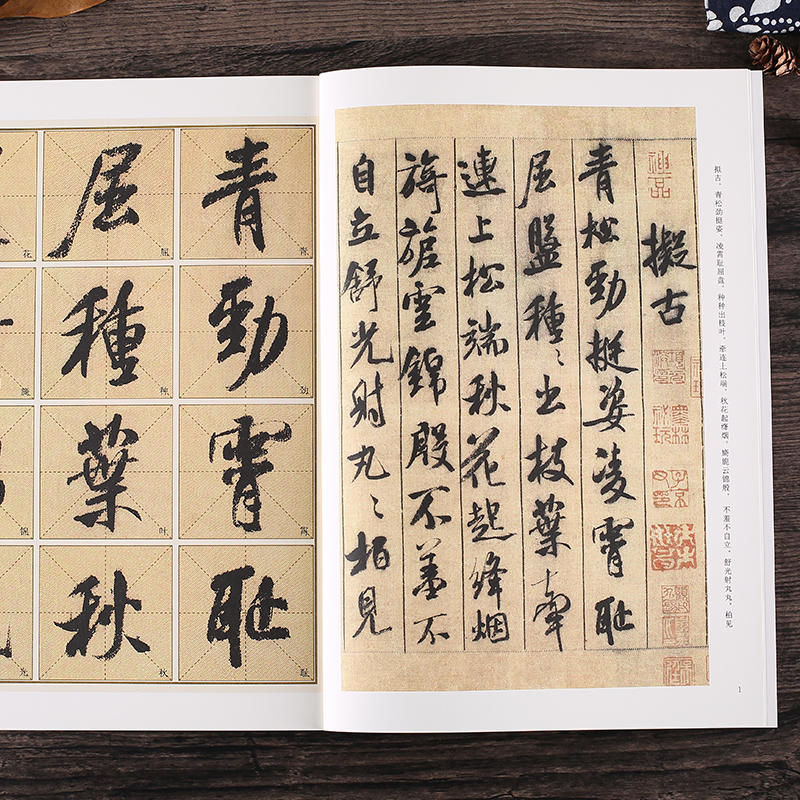 拟古。青松劲挺姿，凌霄耻屈盘。种种出枝叶，牵连上松端。秋花起绛烟，旖旎云锦殷。不羞不自立，舒光射丸丸。柏见
神品
擬古
青松勁挺姿凌霄耻
屈盤種〻出枝葉牽
連上松端秋花起絳烟
旖旎雲錦殷不羞不
自立舒光射丸〻柏見
1
青勁霄耻
青
劲
霄
耻
屈種葉秋
屈
种
叶
秋
花
光